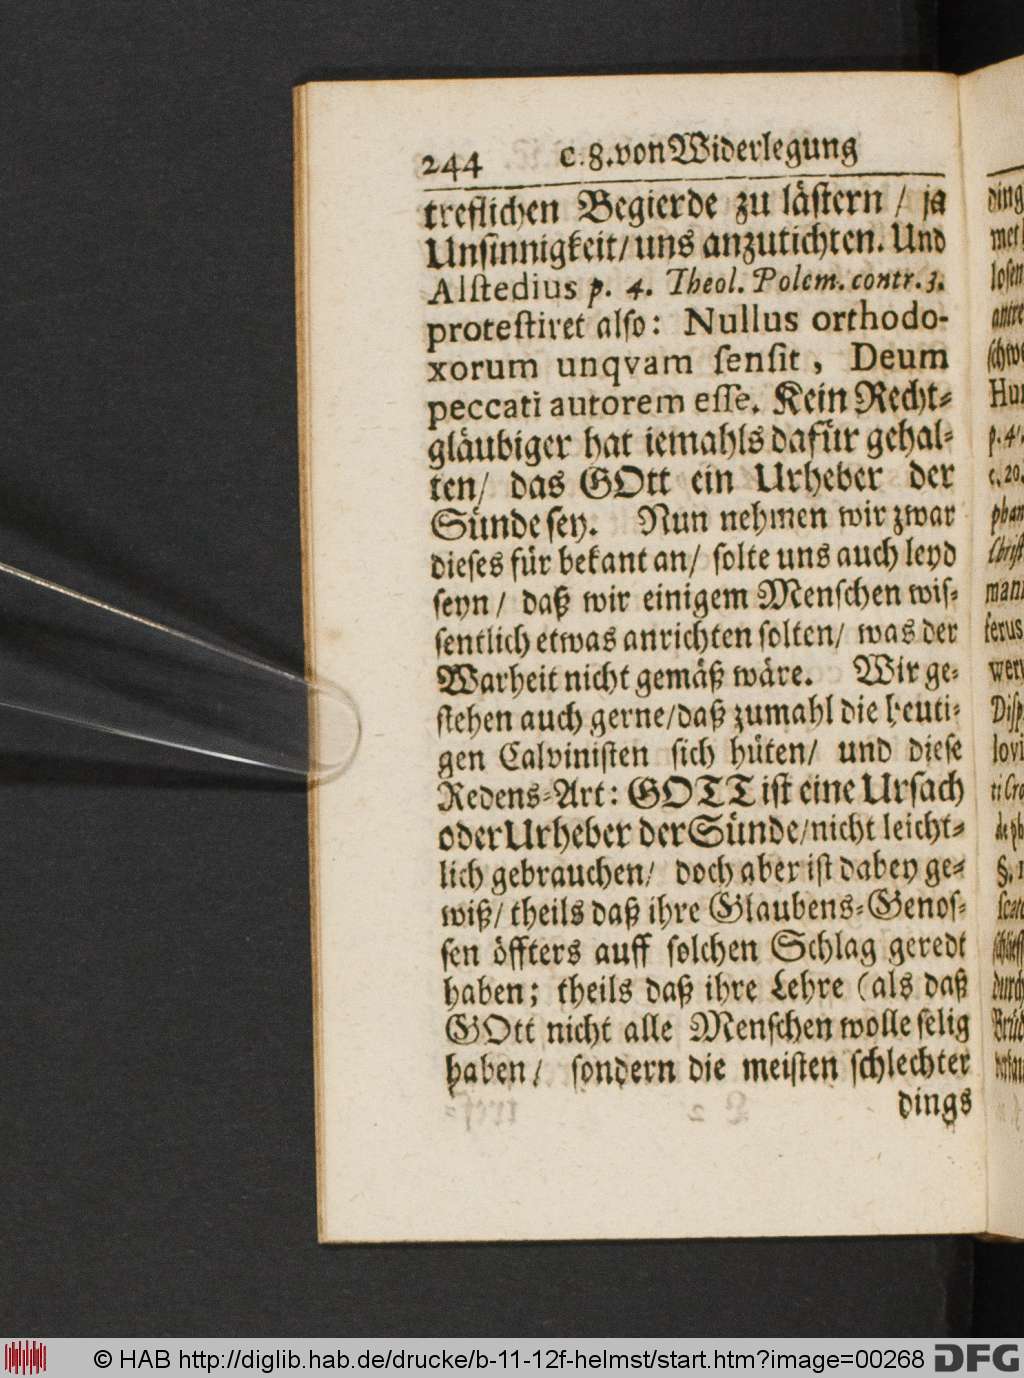 244 c. 8. von Widerlegung
treflichen Begierde zu lästern / ja
Unsinnigkeit / uns anzutichten. Und
Alstedius p. 4. Theol. Polem. contr. 3.
protestiret also: Nullus orthodo-
xorum unqvam sensit, Deum
peccati autorem esse. Kein Recht-
gläubiger hat iemahls dafür gehal-
ten / das GOtt ein Urheber der
Sünde sey. Nun nehmen wir zwar
dieses für bekant an / solte uns auch leyd
seyn / daß wir einigem Menschen wis-
sentlich etwas anrichten solten / was der
Warheit nicht gemäß wäre. Wir ge-
stehen auch gerne / daß zumahl die heuti-
gen Calvinisten sich hüten / und diese
Redens-Art: GOTT ist eine Ursach
oder Urheber der Sünde / nicht leicht-
lich gebrauchen / doch aber ist dabey ge-
wiß / theils daß ihre Glaubens-Genos-
sen öffters auff solchen Schlag geredt
haben; theils daß ihre Lehre (als daß
GOtt nicht alle Menschen wolle selig
haben / sondern die meisten schlechter
dings
ding
losen
Hun
p. 4.
c. 20.
phan
Christ
mann
ferus
Disp
lovi
§. 1
durch
Brüd
© HAB http://diglib.hab.de/drucke/b-11-12f-helmst/start.htm?image=00268 DFG